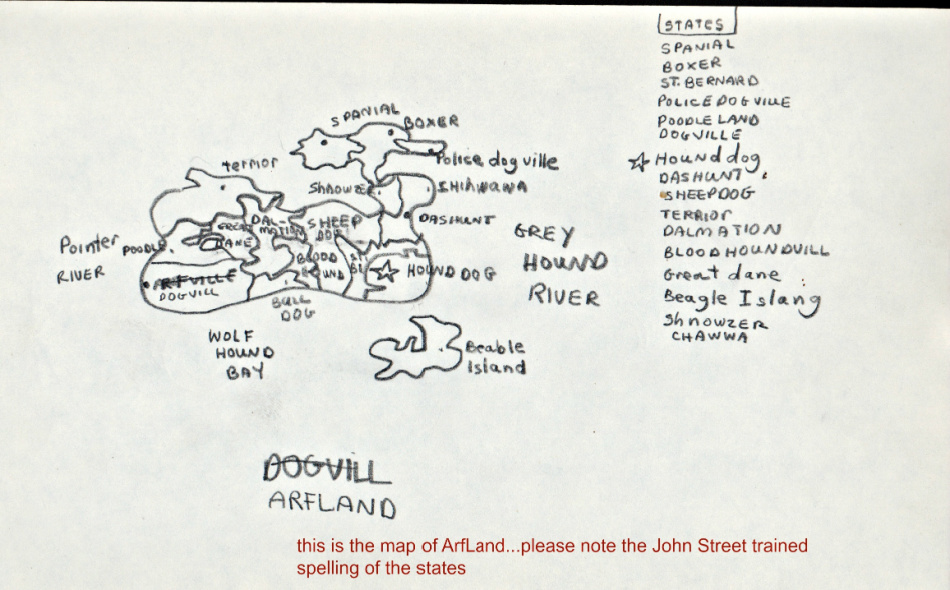 STATES
SPANIAL
BOXER
ST. BERNARD
POLICE DOG VILLE
POODLE LAND
DOGVILLE
HOUND dog
DASHUNT
SHEEPDOG
TERRIOR
DALMATION
BLOODHOUNDVILL
Great dane
Beagle Islang
Shnowzer
CHAWWA
SPANIAL
BOXER
Police dog ville
terrior
Shnowzer
SHIHWAWA
DAL-
MATION
SHEEP
DOG
DASHUNT
GREAT
DANE
Pointer
RIVER
POODLE
BLOOD
HOUND
ST.
HOUND DOG
GREY
HOUND
RIVER
ARFVILLE
DOGVILL
BULL
DOG
WOLF
HOUND
BAY
Beable
Island
DOGVILL
ARFLAND
this is the map of ArfLand...please note the John Street trained
spelling of the states